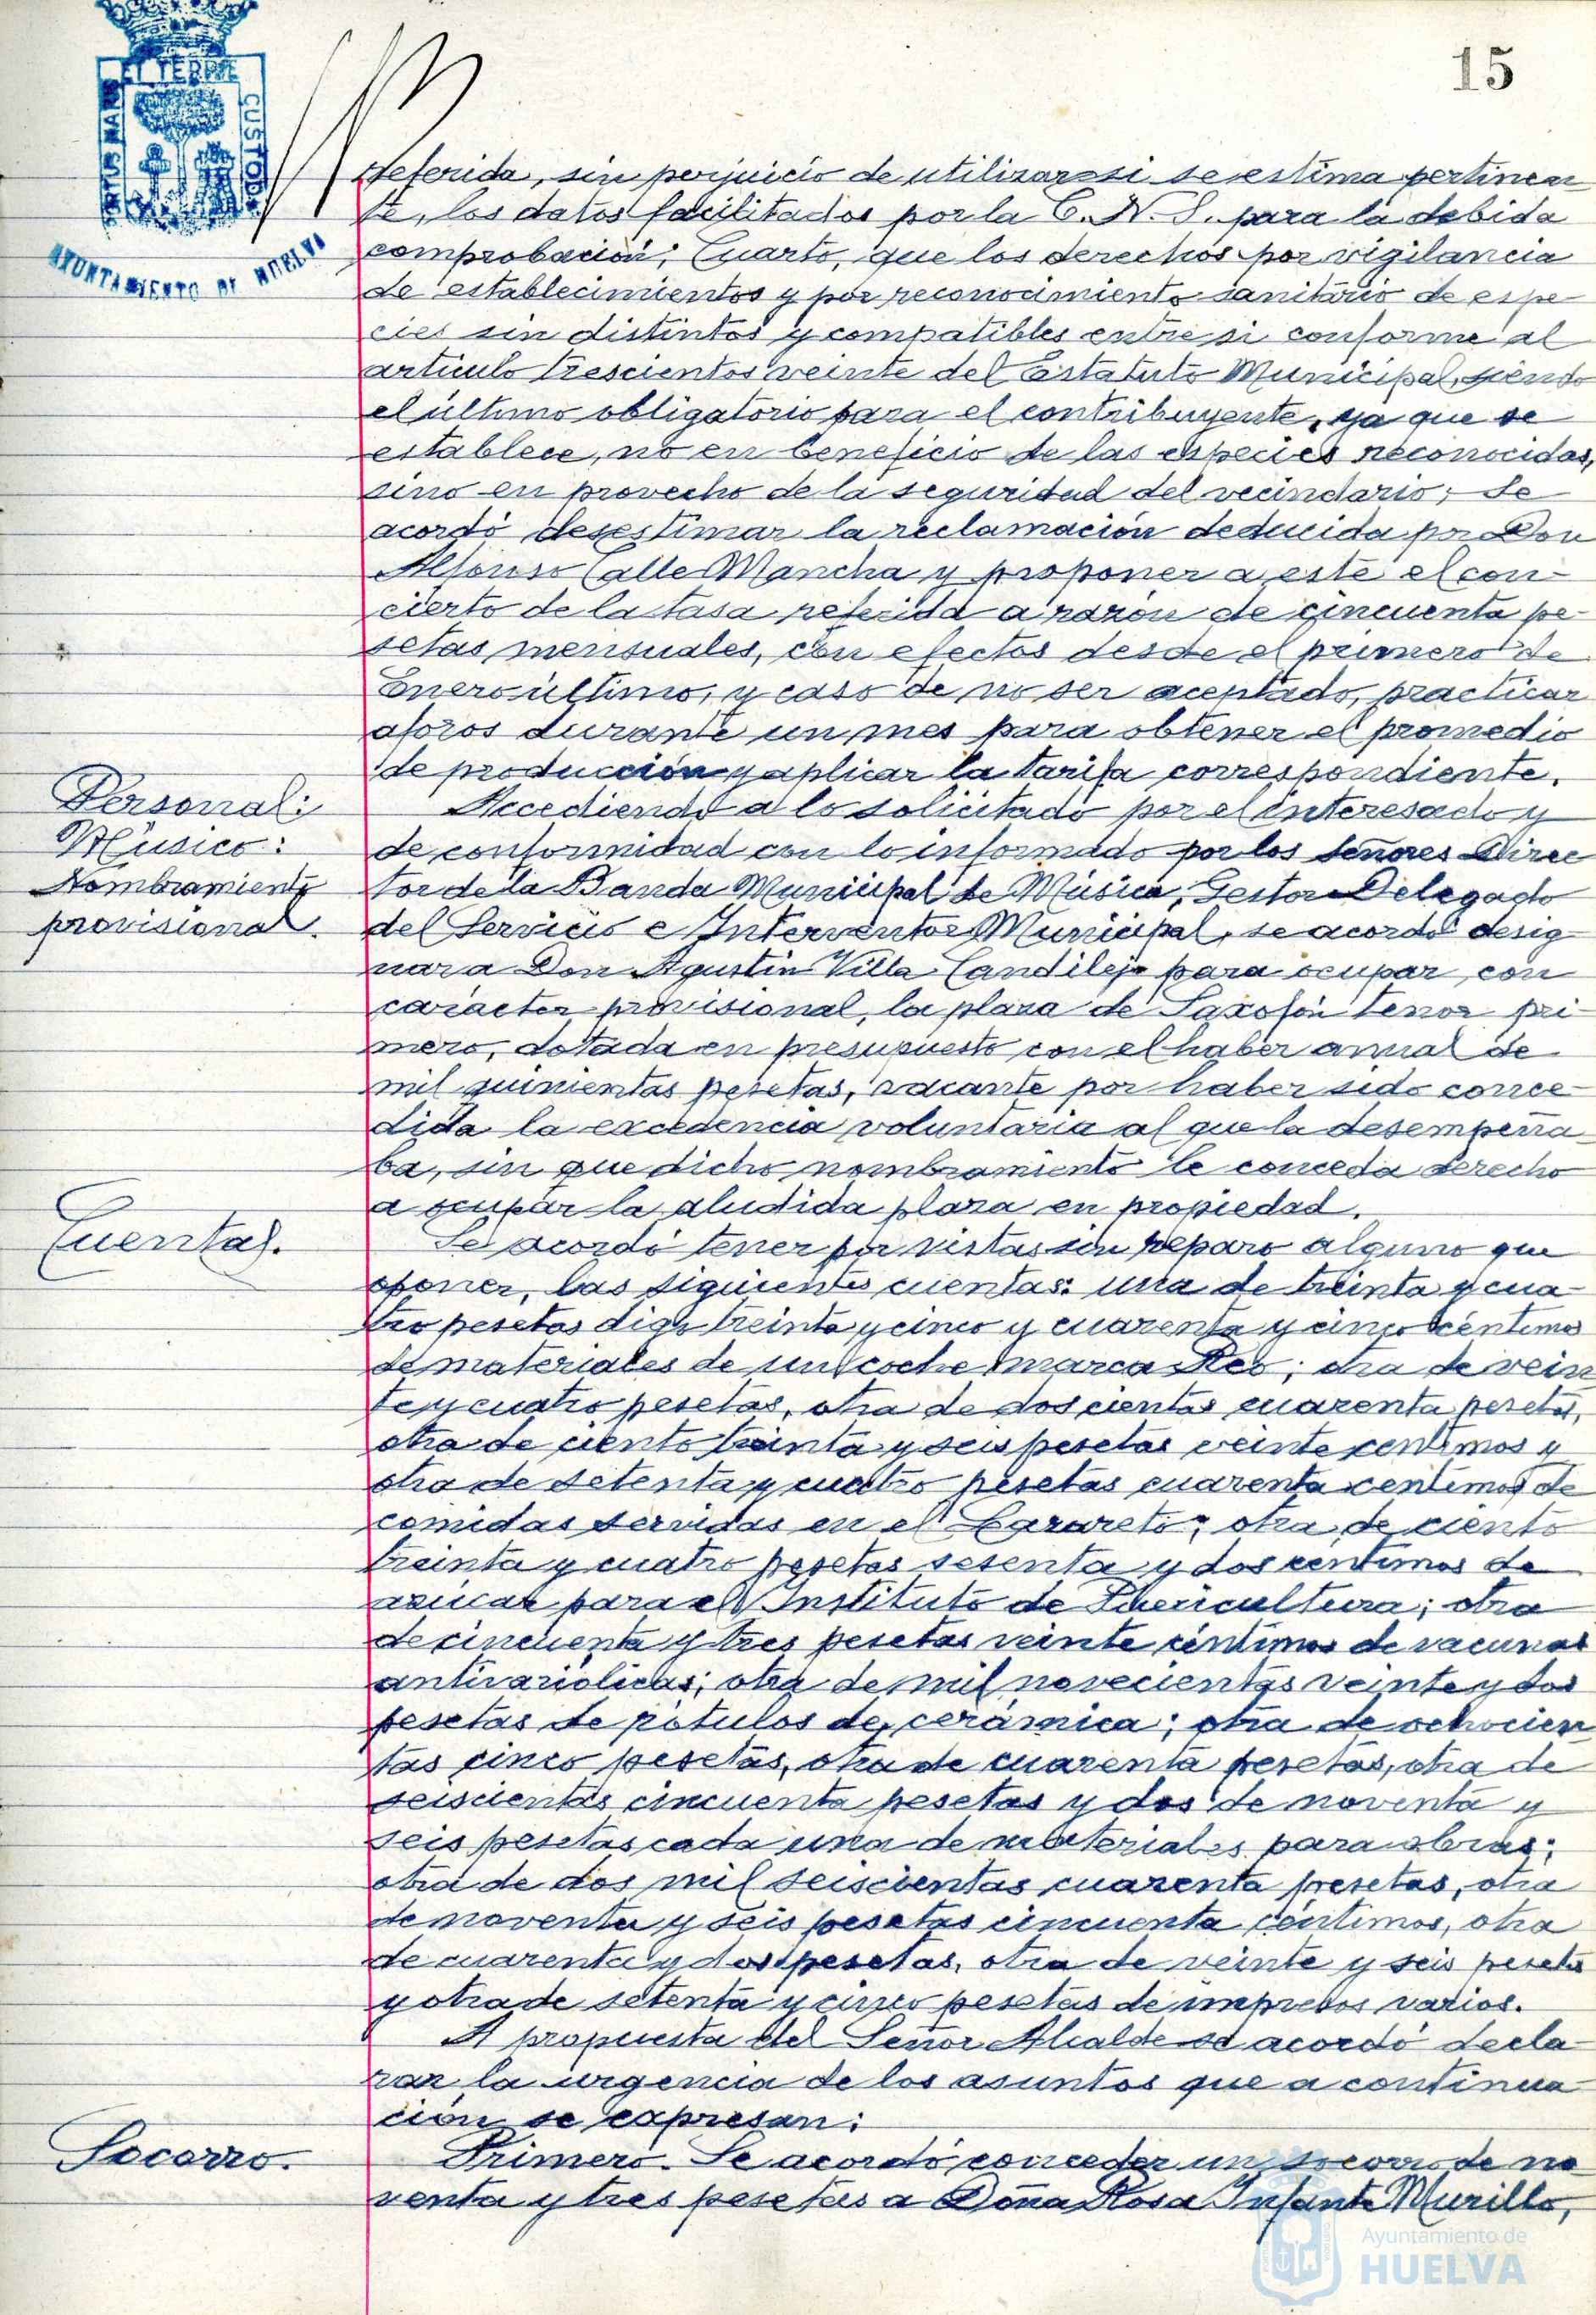 15
ET TERRÆ
PORTUS MARIS
CUSTODI
AYUNTAMIENTO DE HUELVA
referida, sin perjuicio de utilizar si se estima pertinen
te, los datos facilitados por la C. N. S. para la debida
comprobación; Cuarto, que los derechos por vigilancia
de establecimientos y por reconocimiento sanitario de espe
cies sin distintos y compatibles entre si conforme al
artículo trescientos veinte del Estatuto Municipal, siendo
el último obligatorio para el contribuyente, ya que se
establece, no en beneficio de las especies reconocidas,
sino en provecho de la seguridad del vecindario; Se
acordó desestimar la reclamación deducida por Don
Alfonso Calle Mancha y proponer a este el con-
cierto de la tasa referida a razón de cincuenta pe-
setas mensuales, con efectos desde el primero de
Enero último, y caso de no ser aceptado, practicar
aforos durante un mes para obtener el promedio
de producción y aplicar la tarifa correspondiente.
Personal:
Músico:
Nombramiento
provisional.
Accediendo a lo solicitado por el interesado y
de conformidad con lo informado por los señores Direc
tor de la Banda Municipal de Música, Gestor Delegado
del Servicio e Interventor Municipal, se acordó desig-
nar a Don Agustin Villa Candilejo para ocupar, con
carácter provisional, la plaza de Saxofón tenor pri-
mero, dotada en presupuesto con el haber anual de
mil quinientas pesetas, vacante por haber sido conce-
dida la excedencia voluntaria al que la desempeña-
ba, sin que dicho nombramiento le conceda derecho
a ocupar la aludida plaza en propiedad.
Cuentas.
Se acordó tener por vistas sin reparo alguno que
oponer, las siguientes cuentas: una de treinta y cua-
tro pesetas digo treinta y cinco y cuarenta y cinco céntimos
de materiales de un coche marca Reo; otra de vein
te y cuatro pesetas, otra de doscientas cuarenta pesetas,
otra de ciento treinta y seis pesetas veinte centimos y
otra de setenta y cuatro pesetas cuarenta centimos de
comidas servidas en el Lazareto; otra de ciento
treinta y cuatro pesetas sesenta y dos centimos de
azúcar para el Instituto de Puericultura; otra
de cincuenta y tres pesetas veinte céntimos de vacunas
antivariolicas; otra de mil novecientas veinte y dos
pesetas de rótulos de cerámica; otra de ochocien
tas cinco pesetas, otra de cuarenta pesetas, otra de
seiscientas cincuenta pesetas y dos de noventa y
seis pesetas cada una de materiales para obras;
otra de dos mil seiscientas cuarenta pesetas, otra
de noventa y seis pesetas cincuenta céntimos, otra
de cuarenta y dos pesetas, otra de veinte y seis pesetas
y otra de setenta y cinco pesetas de impresos varios.
A propuesta del Señor Alcalde se acordó decla-
rar la urgencia de los asuntos que a continua-
ción se expresan:
Socorro.
Primero. Se acordó conceder un socorro de no
venta y tres pesetas a Doña Rosa Infante Murillo,
Ayuntamiento de
HUELVA